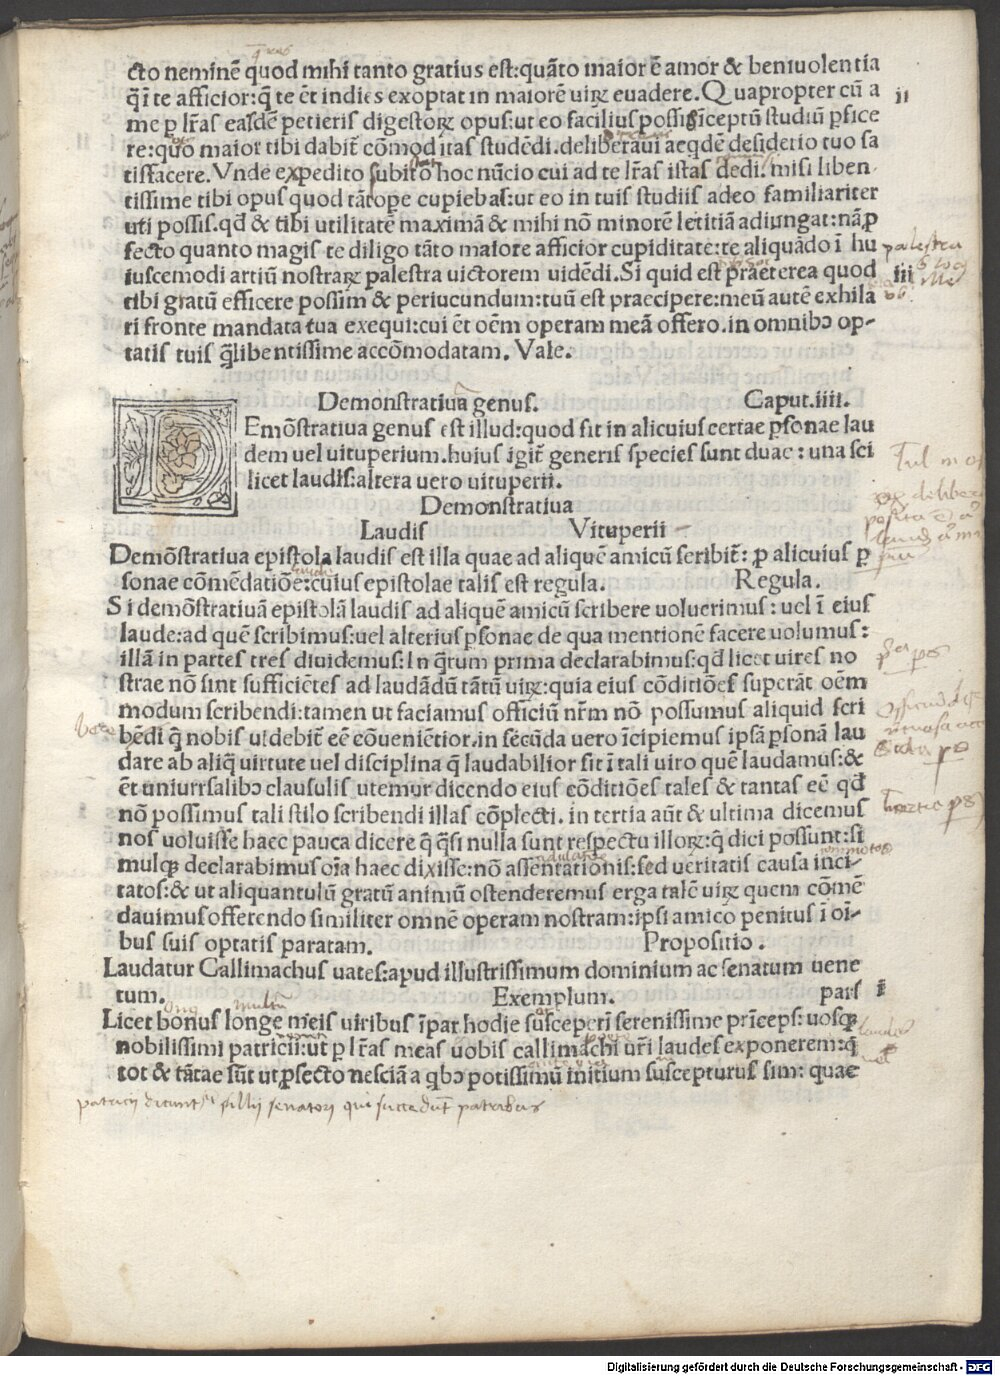 cto neminē quod mihi tanto gratius est:quāto maior ē amor & beniuolentia
q̄ ī te afficior:q̄ te ēt indies exoptat in maiorē uiꝝ euadere. Quapropter cū a ii
me ꝑ lr̄as easdē petieris digestoꝝ opus:ut eo facilius possis īceptū studiū ꝑfice
re:quo maior tibi dabit̄ cōmoditas studēdi. deliberaui aeq̄dē desiderio tuo sa
tisfacere. Vnde expedito subito hoc nūcio cui ad te lr̄as istas dedi. misi liben
tissime tibi opus quod tātoꝑe cupiebas:ut eo in tuis studiis adeo familiariter
uti possis. qđ & tibi utilitatē maximā & mihi nō minorē letitiā adiungat:nā ꝓ
fecto quanto magis te diligo tāto maiore afficior cupiditate:te aliquādo ī hu
iuscemodi artiū nostraꝝ palestra uictorem uidēdi. Si quid est praeterea quod iii
tibi gratū efficere possim & periucundum:tuū est praecipere:meū autē exhila
ri fronte mandata tua exequi:cui ēt oēm operam meā offero. in omnibꝰ op-
tatis tuis q̄libentissime accōmodatam. Vale.
Demonstratiua genus. Caput.iiii.
DEmōstratiua genus est illud:quod fit in alicuius certae ꝑsonae lau
dem uel uituperium. huius igit̄ generis species sunt duae: una sci
licet laudis:altera uero uituperii.
Demonstratiua
Laudis Vituperii
Demōstratiua epistola laudis est illa quae ad aliquē amicū scribit̄: ꝓ alicuius ꝑ
sonae cōmēdatiōe:cuius epistolae talis est regula. Regula.
Si demōstratiuā epistolā laudis ad aliquē amicū scribere uoluerimus: uel ī eius
laude:ad quē scribimus:uel alterius ꝑsonae de qua mentionē facere uolumus:
illā in partes tres diuidemus:In q̄rum prima declarabimus:qđ licet uires no
strae nō sint sufficiētes ad laudādū tātū uiꝝ:quia eius cōditiōes superāt oēm
modum scribendi:tamen ut faciamus officiū nr̄m nō possumus aliquid scri
bēdi q̄ nobis uidebit̄ eē cōueniētior. in secūda uero īcipiemus ipsā ꝑsonā lau
dare ab aliq̄ uirtute uel disciplina q̄ laudabilior sit ī tali uiro quē laudamus:&
ēt uniuersalibꝰ clausulis utemur dicendo eius cōditiōes tales & tantas eē qđ
nō possimus tali stilo scribendi illas cōplecti. in tertia aūt & ultima dicemus
nos uoluisse haec pauca dicere q̄ q̄si nulla sunt respectu illoꝝ:q̄ dici possunt:si
mulqꝫ declarabimus oīa haec dixisse:nō assentationis:sed ueritatis causa inci-
tatos:& ut aliquantulū gratū animū ostenderemus erga talē uiꝝ quem cōmē
dauimus offerendo similiter omnē operam nostram:ipsi amico penitus ī oī-
bus suis optatis paratam. Propositio.
Laudatur Callimachus uates:apud illustrissimum dominium ac senatum uene
tum. Exemplum. pars i
Licet honus longe meis uiribus īpar hodie susceperī serenissime prīceps: uosqꝫ
nobilissimi patricii:ut ꝑ lr̄as meas uobis callimachi ur̄i laudes exponerem:q̄
tot & tātae sūt ut ꝓfecto nesciā a qbꝰ potissimū initium suscepturus sim: quae
patricij dicunt̄ filij senatorum qui succedūt patribus
Digitalisierung gefördert durch die Deutsche Forschungsgemeinschaft - DFG